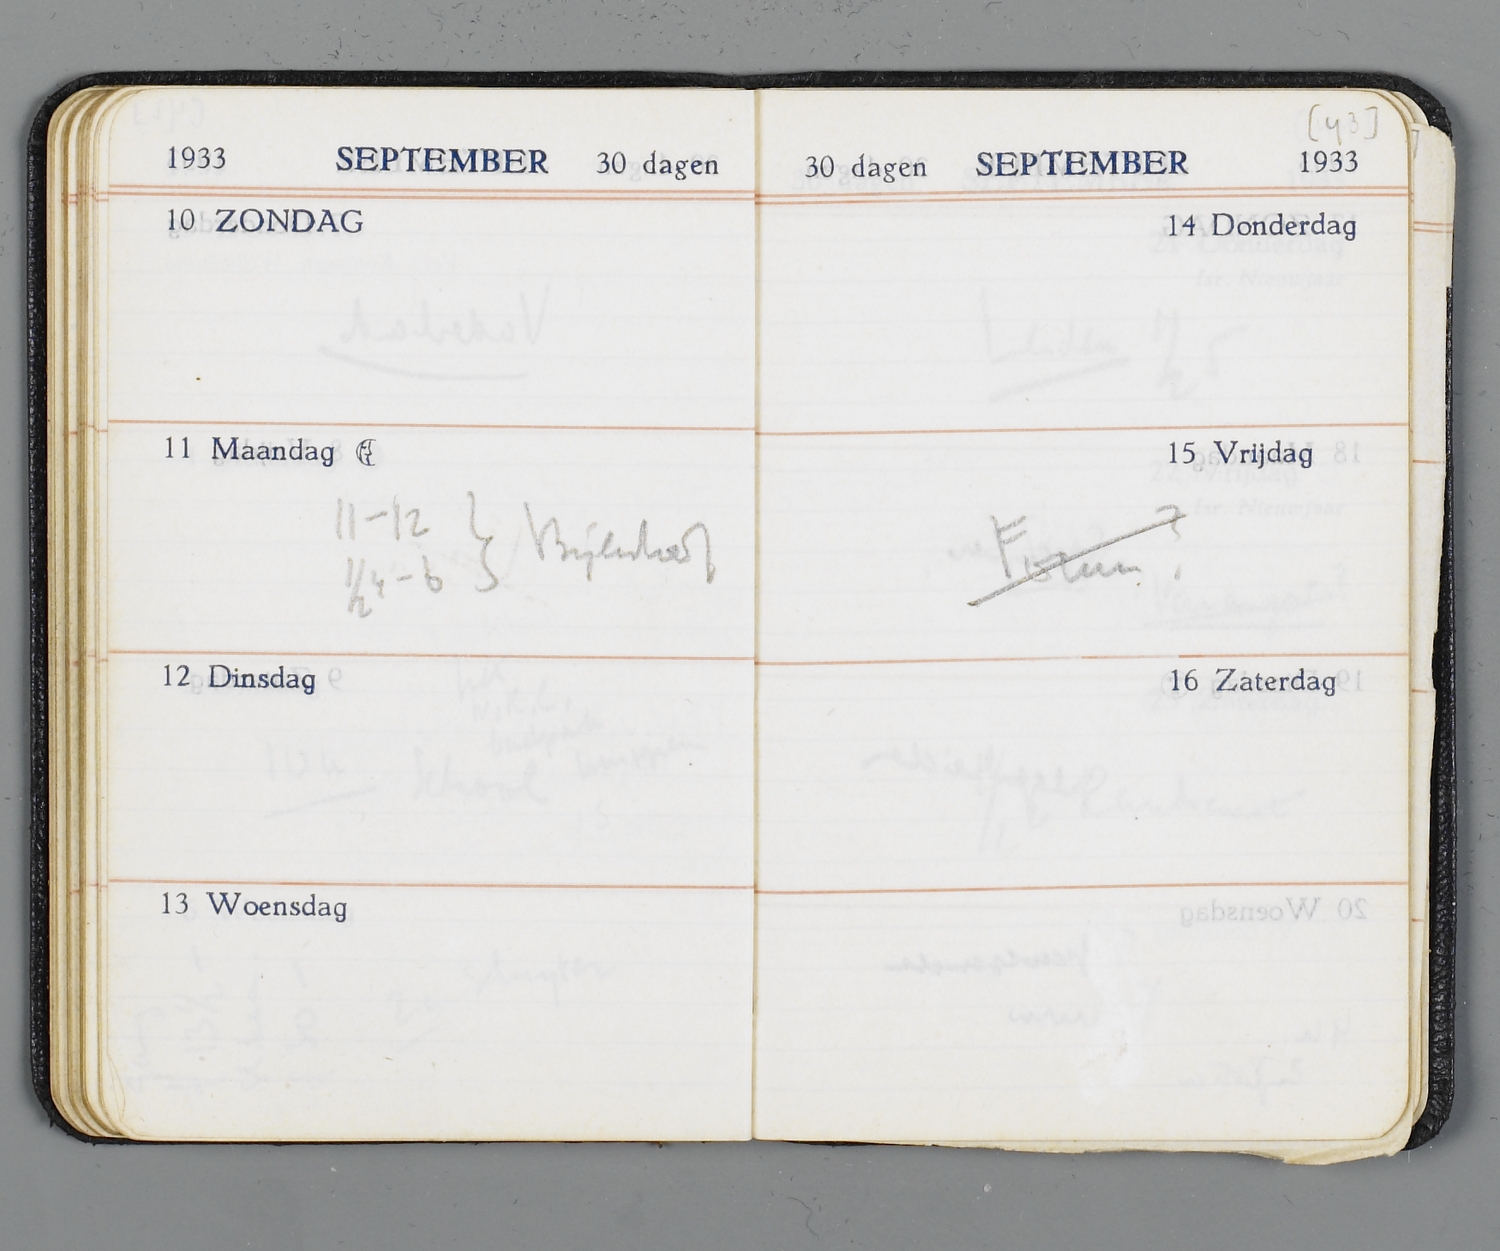 1933 SEPTEMBER 30 dagen
10 ZONDAG
11 Maandag
11-12
½4-6 } Bijenkorf
12 Dinsdag
13 Woensdag
[43]
30 dagen SEPTEMBER 1933
14 Donderdag
15 Vrijdag
Forum ?
16 Zaterdag